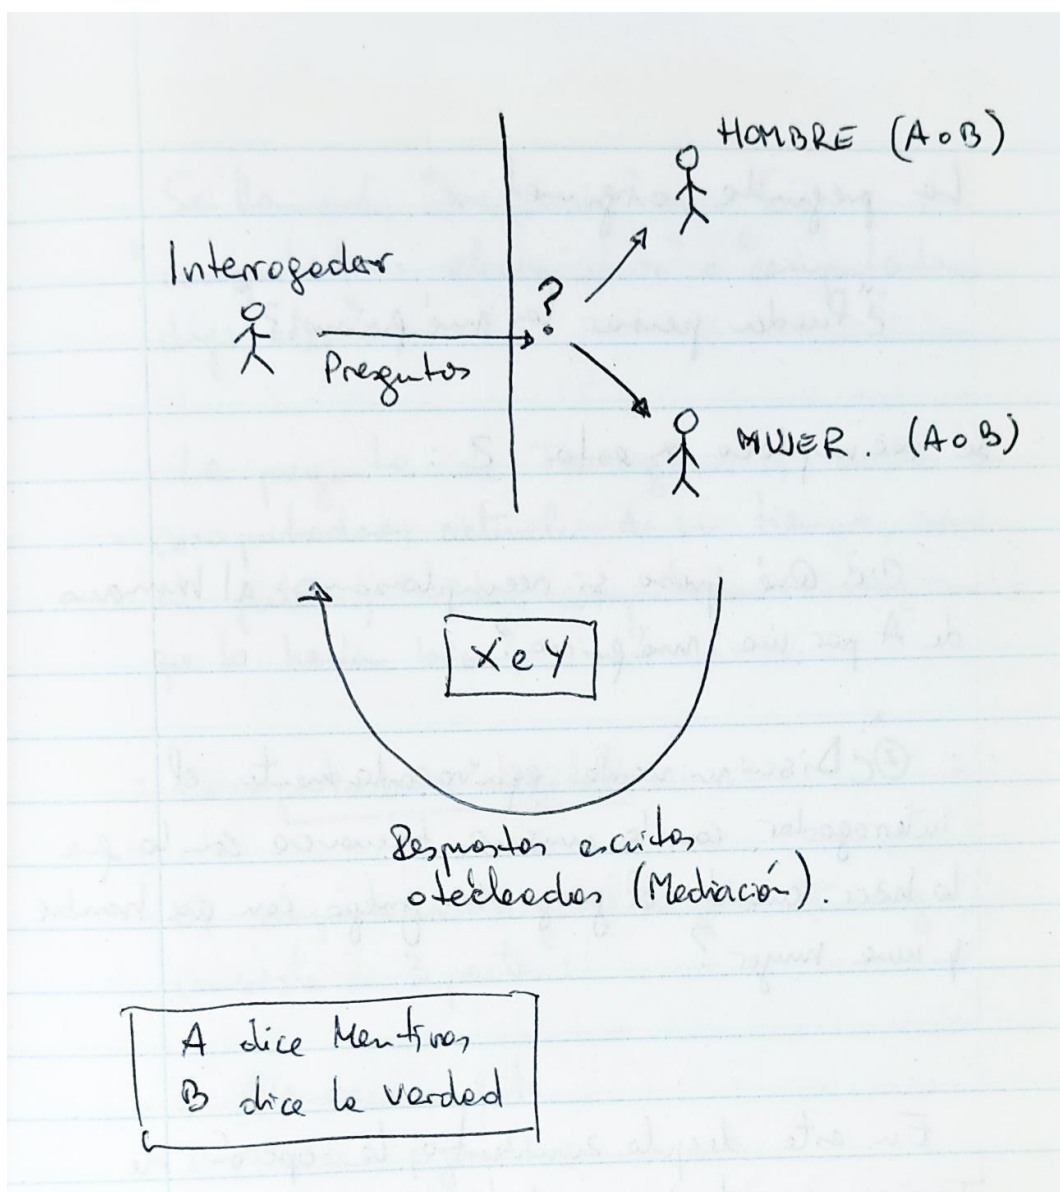 HOMBRE (A o B)
Interrogador
?
Preguntas
MUJER. (A o B)
X e Y
Respuestas escritas
o tecleadas (Mediación).
A dice Mentiras
B dice la verdad